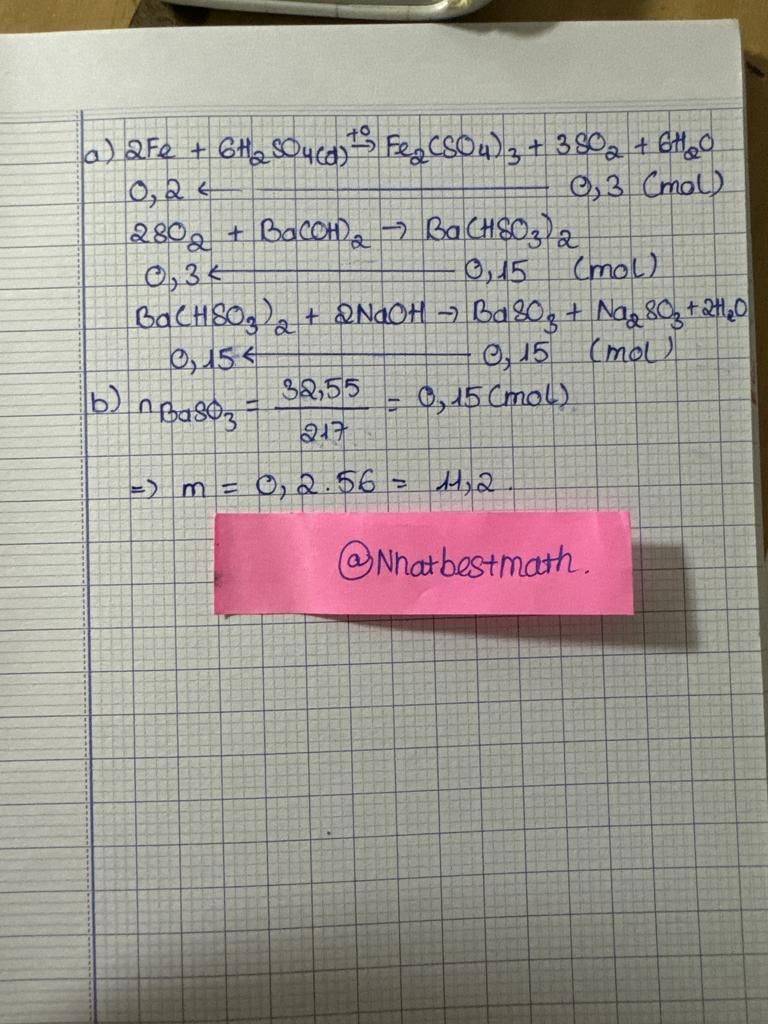 a) 2Fe + 6H₂SO₄(đ) t°→ Fe₂(SO₄)₃ + 3SO₂ + 6H₂O
0,2 ← 0,3 (mol)
2SO₂ + Ba(OH)₂ → Ba(HSO₃)₂
0,3 ← 0,15 (mol)
Ba(HSO₃)₂ + 2NaOH → BaSO₃ + Na₂SO₃ + 2H₂O
0,15 ← 0,15 (mol)
b) nBaSO₃ = 32,55/217 = 0,15 (mol)
=> m = 0,2.56 = 11,2.
@Nhatbestmath.